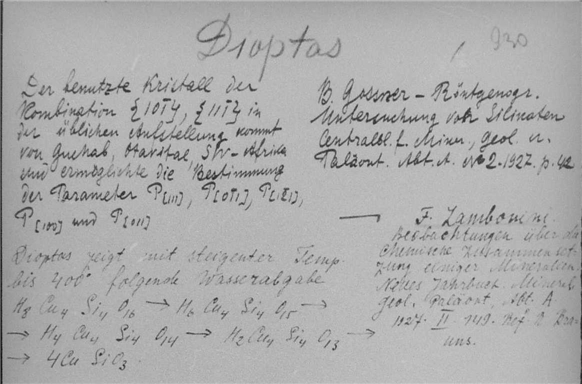 Dioptas
930
Der benutzte Kristall der
Kombination {101̄1}, {111̄} in
der üblichen Aufstellung kommt
von Guchab, Otavital, SW-Afrika
und ermöglichte die Bestimmung
der Parameter P[111], P[01̄1], P[1̄21̄],
P[100] und P[011]
B. Gossner – Röntgenogr.
Untersuchung von Silicaten
Centralbl. f. Miner., Geol. u.
Paläont. Abt. A. № 2-1927. p. 42
Dioptas zeigt mit steigenter Temp.
bis 400° folgende Wasserabgabe
H8 Cu4 Si4 O16 → H6 Cu4 Si4 O15 →
→ H4 Cu4 Si4 O14 → H2 Cu4 Si4 O13 →
→ 4Cu SiO3.
— F. Zambonini.
Beobachtungen über die
chemische Zusammenset-
zung einiger Mineralien.
Neues Jahrbuch. Mineral.
geol. Paläont. Abt. A
1927. II 149. Ref. R. Brauns.